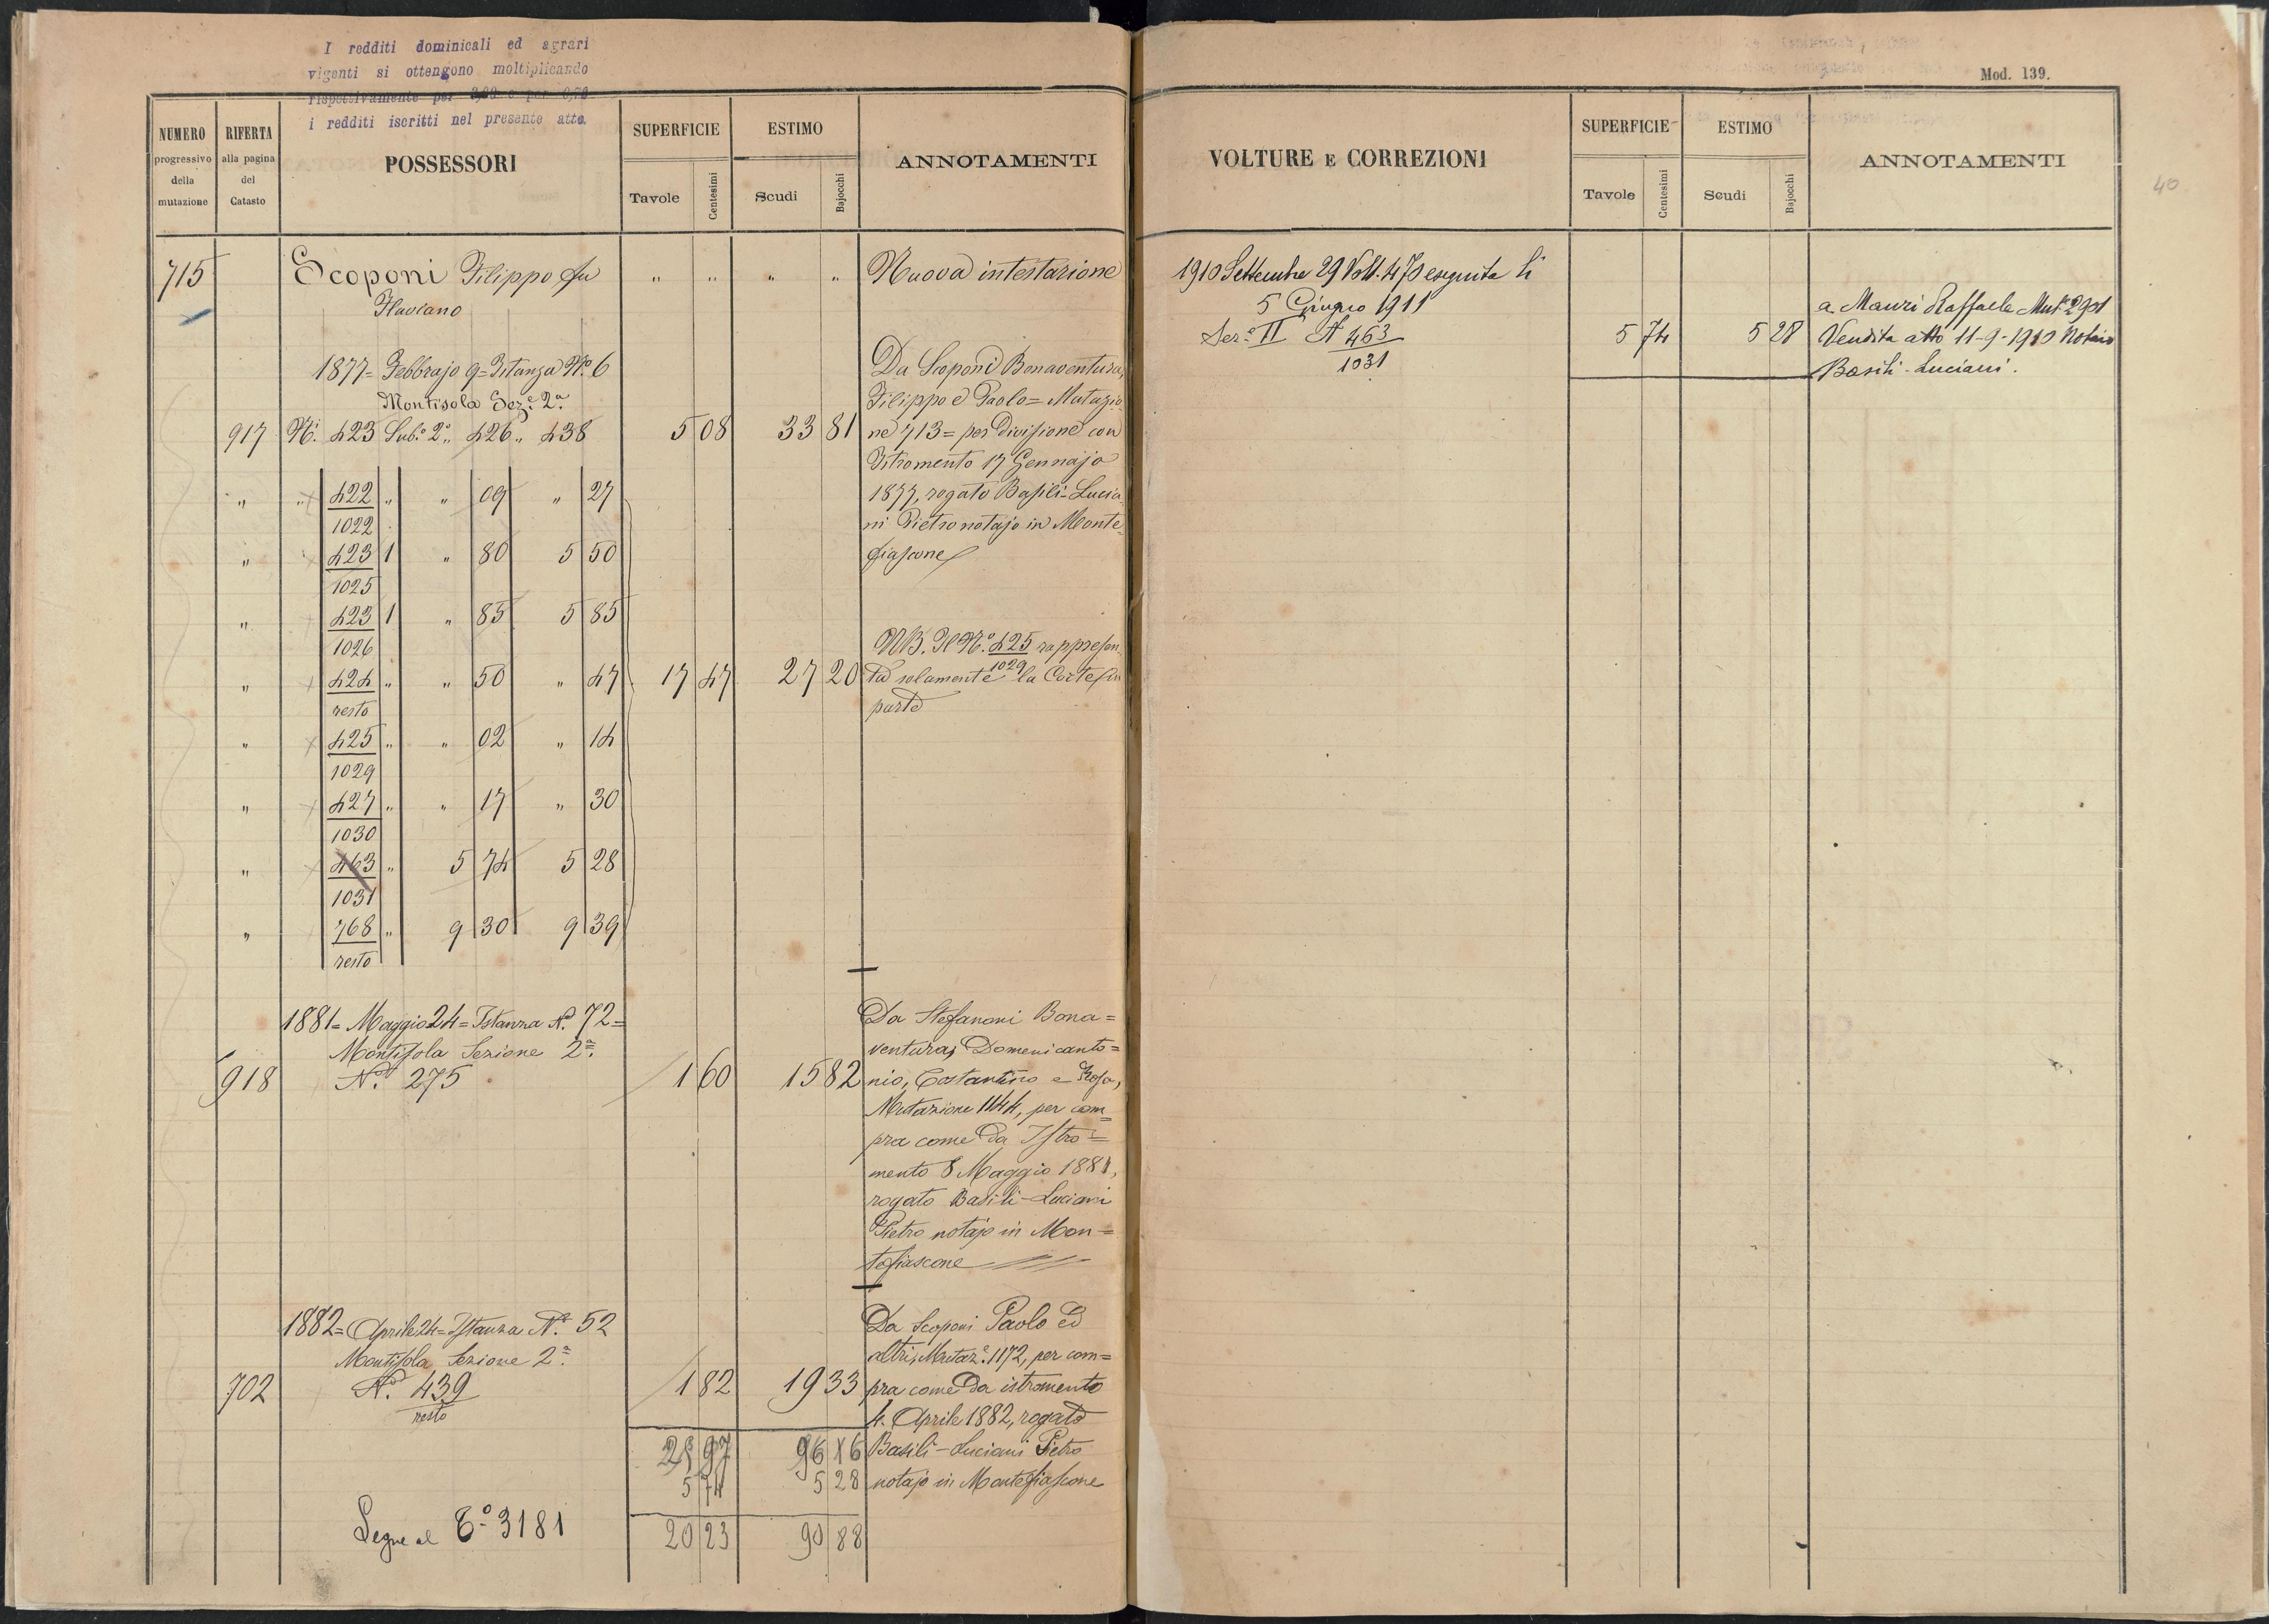 I redditi dominicali ed agrari
vigenti si ottengono moltiplicando
rispettivamente per e per 0,70
i redditi iscritti nel presente atto.
Mod. 139.
NUMERO progressivo della mutazione
RIFERTA alla pagina del Catasto
POSSESSORI
SUPERFICIE
Tavole Centesimi
ESTIMO
Scudi Bajocchi
ANNOTAMENTI
VOLTURE E CORREZIONI
SUPERFICIE
Tavole Centesimi
ESTIMO
Scudi Bajocchi
ANNOTAMENTI
40
715 Scoponi Filippo fu " " " " Nuova intestazione
Flaviano
1877= Febbrajo 9= Istanza N.º 6
Montisola Sez.e 2.a
917 N.i 423 Sub.º 2.º, 426,, 438 5 08 33 81
Da Scoponi Bonaventura,
Filippo e Paolo= Mutazio
ne 713= per divisione con
Istromento 17 Gennajo
1877, rogato Basili-Lucia
ni Pietro notajo in Monte
fiascone
" " 422/1022 " " 09 " 27
" 423/1025 1 " 80 5 50
" 423/1026 1 " 85 5 85
" 424/resto " " 50 " 47 17 47 27 20
" 425/1029 " " 02 " 14
" 427/1030 " " 17 " 30
" 463/1031 " 5 74 5 28
" 768/resto " 9 30 9 39
NB. Il N.º 425/1029 rappresen
ta solamente la Corte in
parte
1881= Maggio 24= Istanza N.º 72=
Montisola Sezione 2.a
918 N.º 275 1 60 15 82
Da Stefanoni Bona=
ventura, Domenicanto=
nio, Costantino e Rosa,
Mutazione 1144, per com=
pra come da Istro=
mento 8 Maggio 1881,
rogato Basili-Luciani
Pietro notajo in Mon=
tefiascone
1882= Aprile 24= Istanza N.º 52
Montisola Sezione 2.a
702 N.º 439/resto 1 82 19 33
Da Scoponi Paolo ed
altri, Mutaz.e 1172, per com=
pra come da istromento
4. Aprile 1882, rogato
Basili-Luciani Pietro
notajo in Montefiascone
25 97 96 16
5 74 5 28
20 23 90 88
Segue al C.º 3181
1910 Settembre 29 Volt. 470 eseguita li
5 Giugno 1911
Sez.e II N 463/1031 5 74 5 28
a Mauri Raffaele Mut.e 2901
Vendita atto 11-9-1910 Notaio
Basili-Luciani.